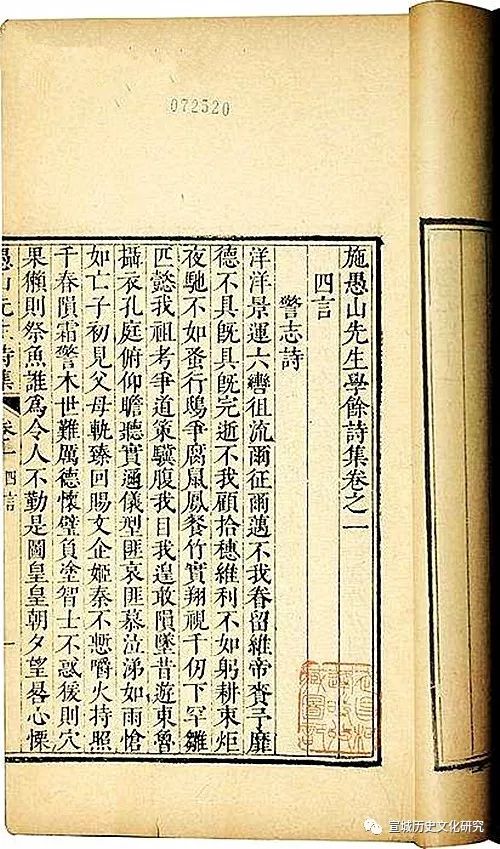 072320
施愚山先生學餘詩集卷之一
四言
警志詩
洋洋景運六轡徂流爾征爾邁不我眷留維帝賚予靡
德不具旣具旣完逝不我顧拾穗維利不如躬耕束炬
夜馳不如蚤行鴟爭腐鼠鳳餐竹實翔視千仞下罕雛
匹懿我祖考爭道策驥腹我目我遑敢隕墜昔遊東魯
攝衣孔庭俯仰瞻聽實邇儀型匪哀匪慕泣涕如雨愴
如亡子初見父母軌臻回賜文企姬秦不慙嚼火持照
千春隕霜警木世難厲德懷璧負塗智士不惑緩則穴
果獺則祭魚誰爲令人不勤是圖皇皇朝夕望晷心慄
愚山先生詩集 卷一 四言 一
宣城历史文化研究